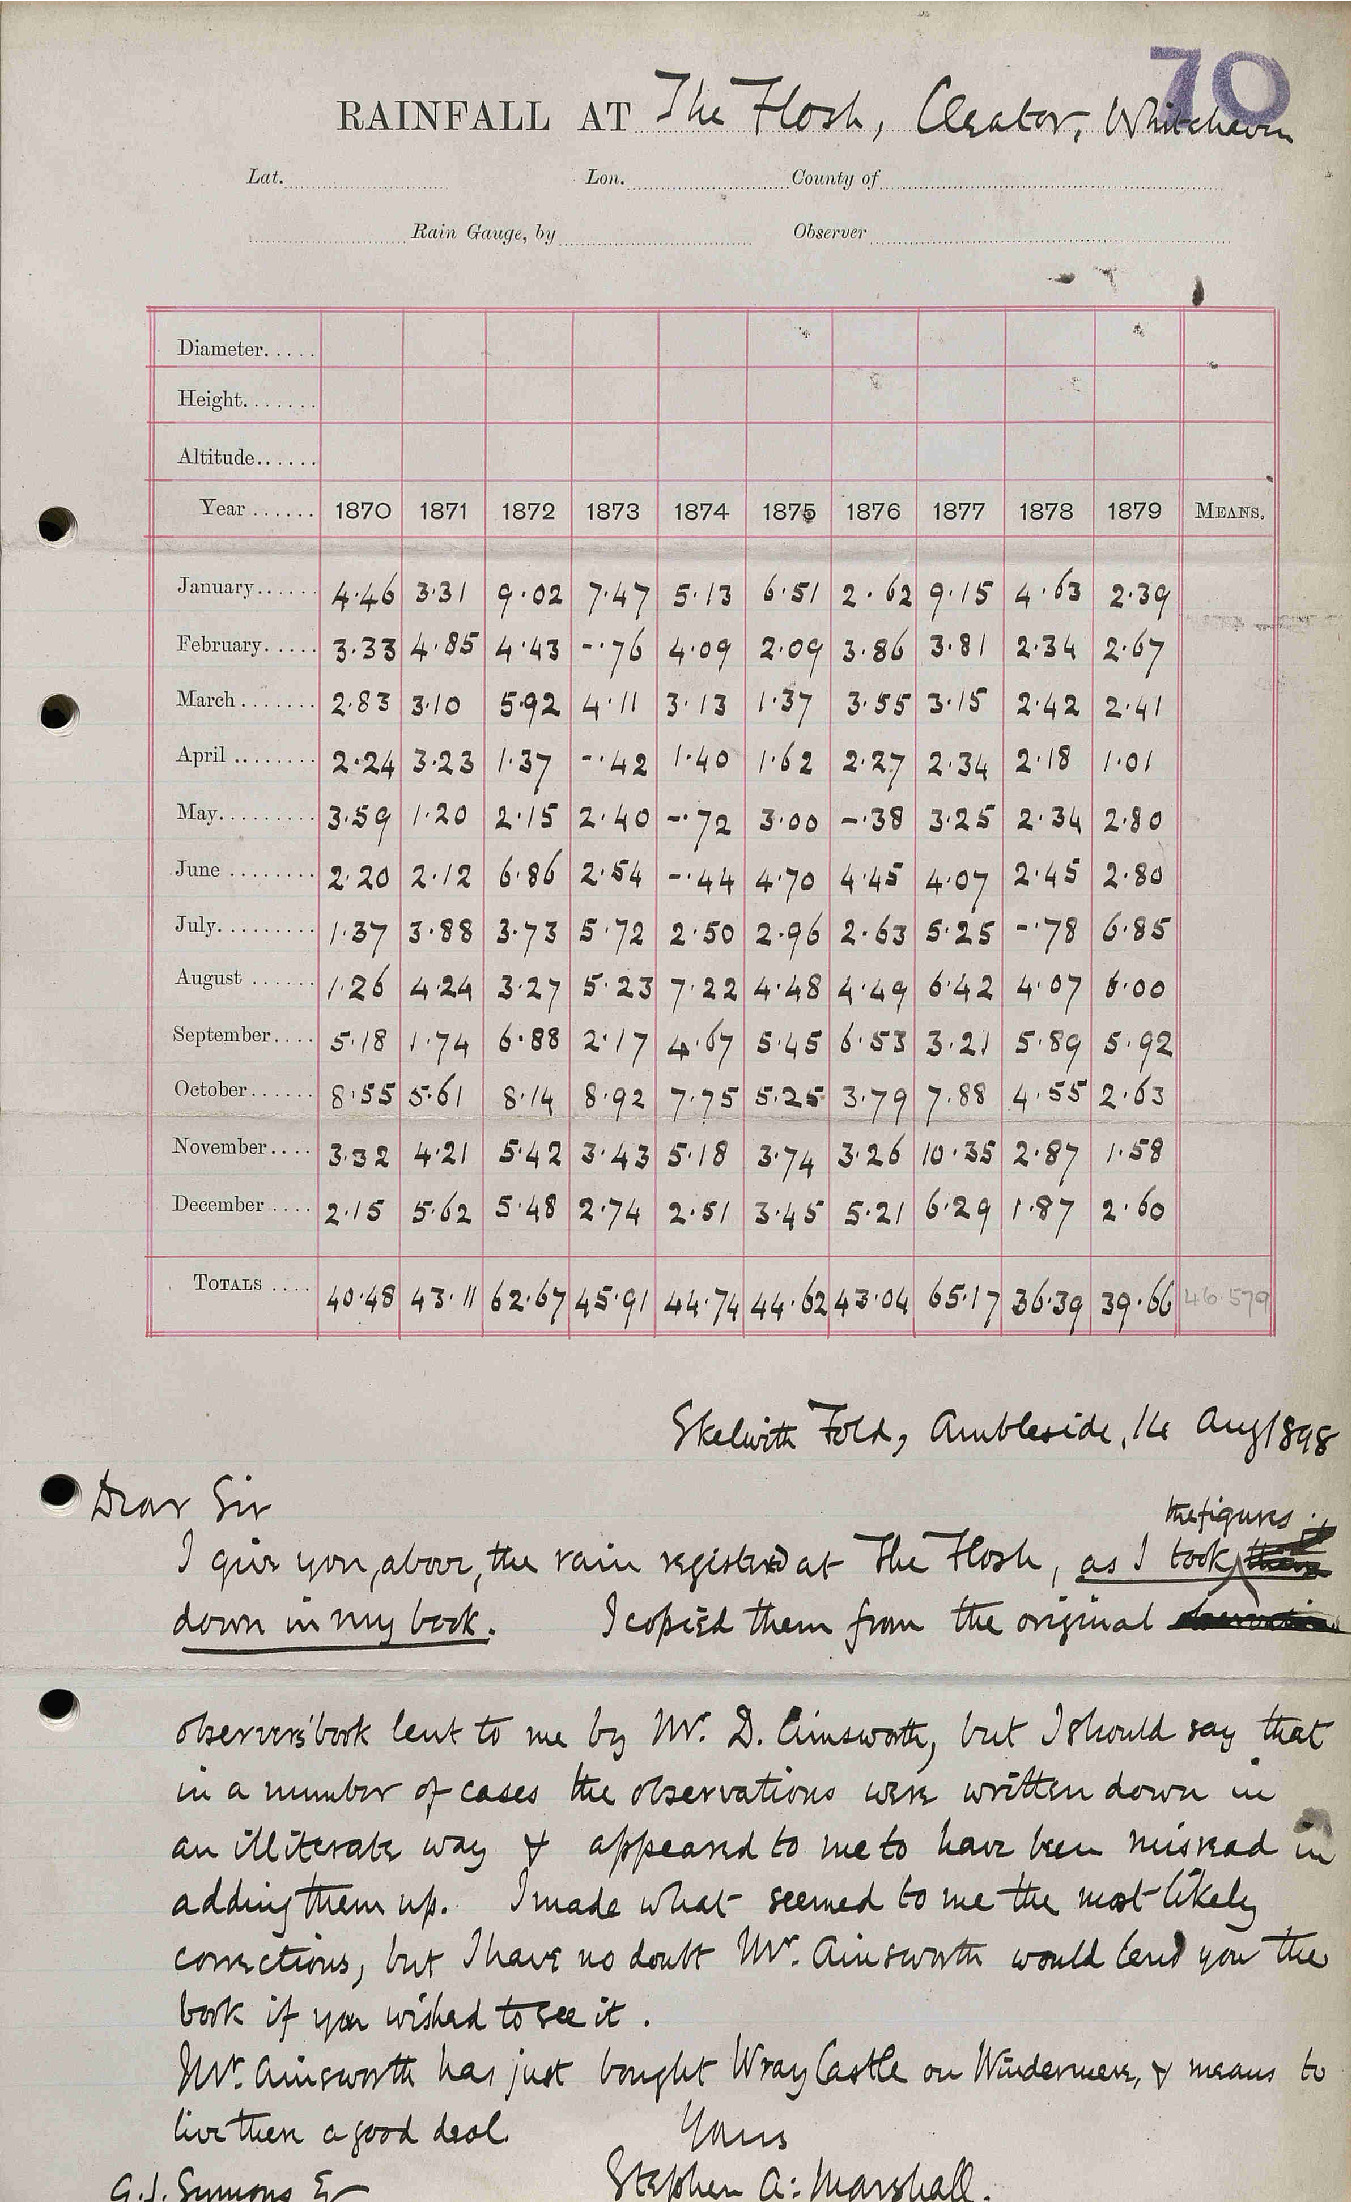 70
RAINFALL AT The Flosh, Cleator, Whitehaven
Lat. Lon. County of
Rain Gauge, by Observer
Diameter.....
Height.......
Altitude......
Year ...... 1870 1871 1872 1873 1874 1875 1876 1877 1878 1879 MEANS.
January...... 4.46 3.31 9.02 7.47 5.13 6.51 2.62 9.15 4.63 2.39
February..... 3.33 4.85 4.43 -.76 4.09 2.09 3.86 3.81 2.34 2.67
March....... 2.83 3.10 5.92 4.11 3.13 1.37 3.55 3.15 2.42 2.41
April ........ 2.24 3.23 1.37 -.42 1.40 1.62 2.27 2.34 2.18 1.01
May......... 3.59 1.20 2.15 2.40 -.72 3.00 -.38 3.25 2.34 2.80
June ........ 2.20 2.12 6.86 2.54 -.44 4.70 4.45 4.07 2.45 2.80
July......... 1.37 3.88 3.73 5.72 2.50 2.96 2.63 5.25 -.78 6.85
August ...... 1.26 4.24 3.27 5.23 7.22 4.48 4.49 6.42 4.07 6.00
September.... 5.18 1.74 6.88 2.17 4.67 5.45 6.53 3.21 5.89 5.92
October...... 8.55 5.61 8.14 8.92 7.75 5.25 3.79 7.88 4.55 2.63
November.... 3.32 4.21 5.42 3.43 5.18 3.74 3.26 10.35 2.87 1.58
December .... 2.15 5.62 5.48 2.74 2.51 3.45 5.21 6.29 1.87 2.60
TOTALS .... 40.48 43.11 62.67 45.91 44.74 44.62 43.04 65.17 36.39 39.66 46.579
Skelwith Fold, Ambleside, 14 Aug 1898
Dear Sir
the figures
I give you, above, the rain registered at The Flosh, as I took
down in my book. I copied them from the original
observers' book lent to me by Mr. D. Ainsworth, but I should say that
in a number of cases the observations were written down in
an illiterate way & appeared to me to have been misread in
adding them up. I made what seemed to me the most likely
corrections, but I have no doubt Mr. Ainsworth would lend you the
book if you wished to see it.
Mr. Ainsworth has just bought Wray Castle on Windermere, & means to
live there a good deal
Yours
G.J. Symons Esq
Stephen A. Marshall.